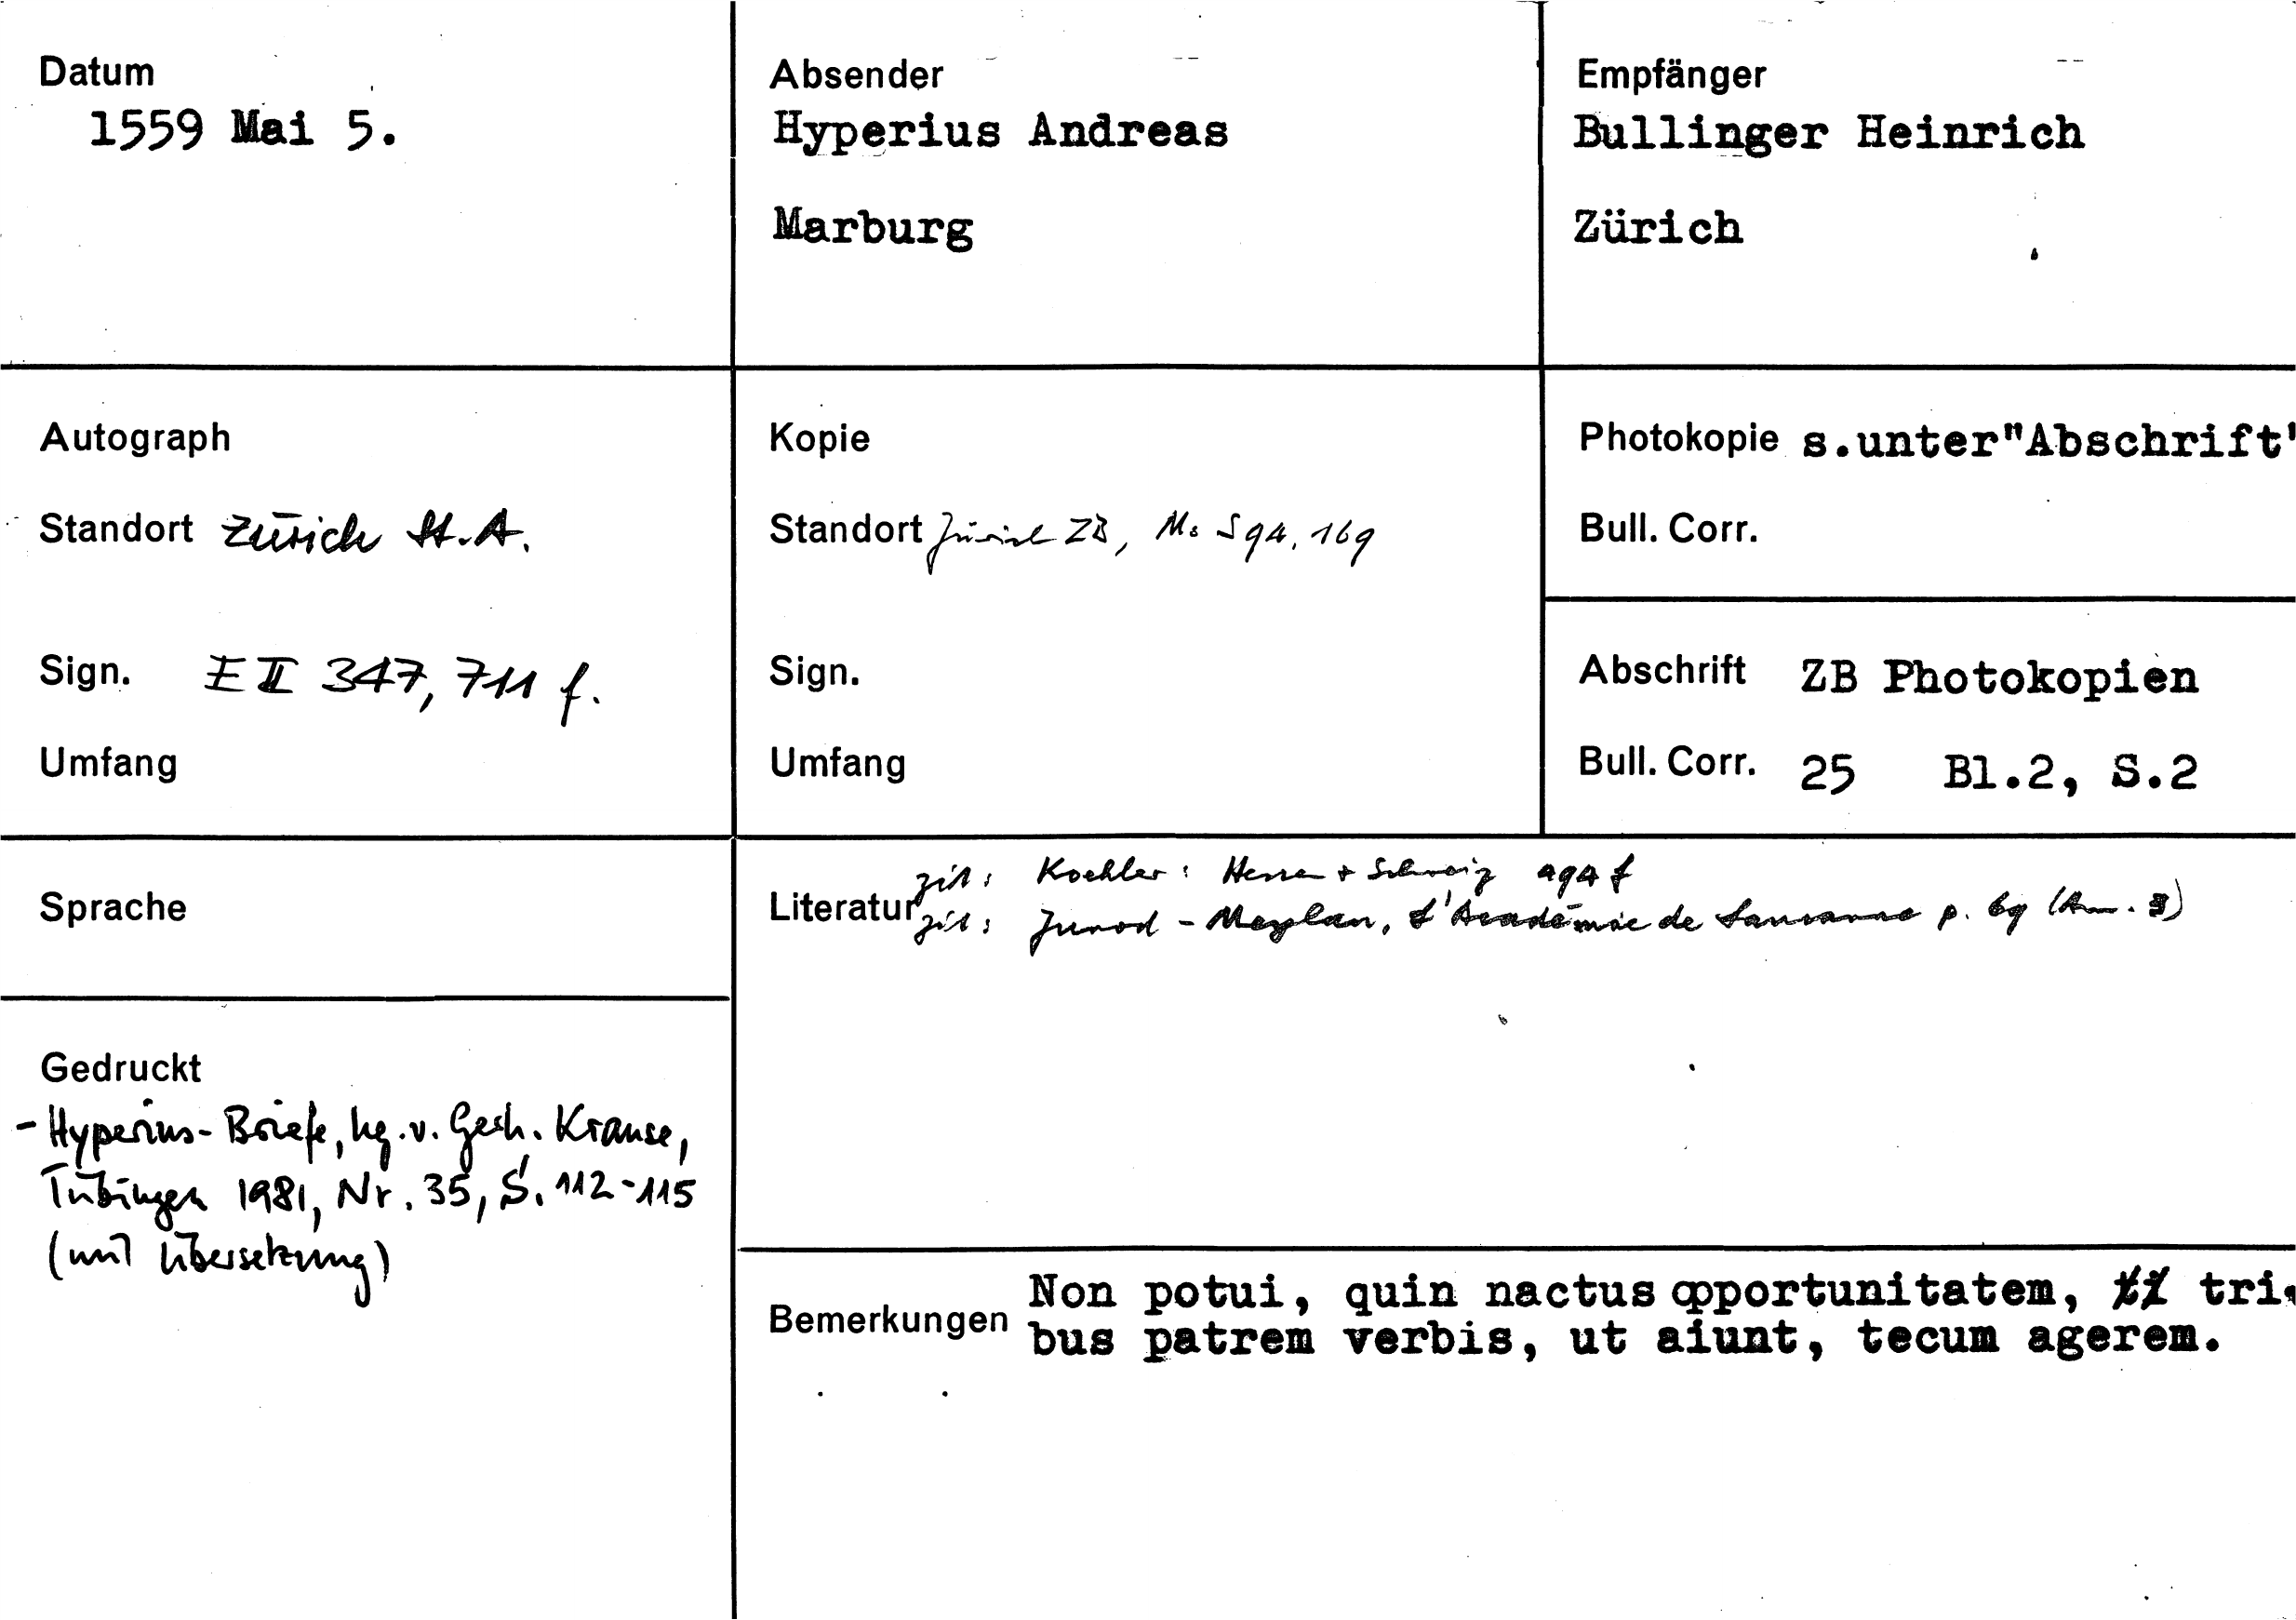 Datum
1559 Mai 5.
Absender
Hyperius Andreas
Marburg
Empfänger
Bullinger Heinrich
Zürich
Autograph
Standort Zürich St.A.
Sign. E II 347, 711 f.
Umfang
Kopie
Standort Zürich ZB, Ms S 94, 169
Sign.
Umfang
Photokopie s.unter"Abschrift"
Bull. Corr.
Abschrift ZB Photokopien
Bull. Corr. 25 Bl.2, S.2
Sprache
Literatur
zit: Koehler: Hessen + Schweiz 494 f
zit: Junod - Meylan, L'Académie de Lausanne p. 69 (Anm. 3)
Gedruckt
- Hyperius-Briefe, hg. v. Gerh. Krause,
Tübingen 1981, Nr. 35, S. 112-115
(mit Übersetzung)
Bemerkungen
Non potui, quin nactus opportunitatem, tri,
bus patrem verbis, ut aiunt, tecum agerem.